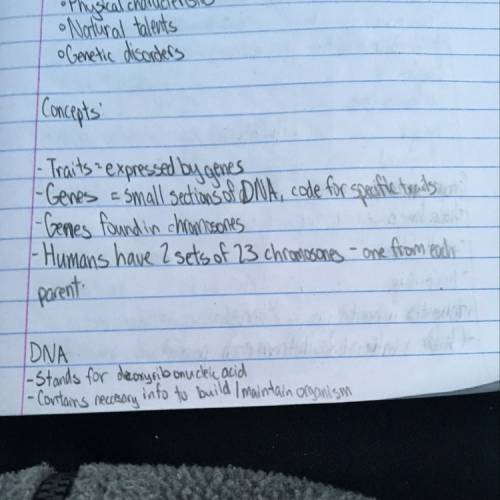 ∘Physical characteristics
∘Natural talents
∘Genetic disorders
Concepts:
- Traits = expressed by genes
- Genes = small sections of DNA, code for specific traits
- Genes found in chromosones
- Humans have 2 sets of 23 chromosones - one from each
parent.
DNA
- Stands for deoxyribonucleic acid
- Contains neccesary info to build / maintain organism